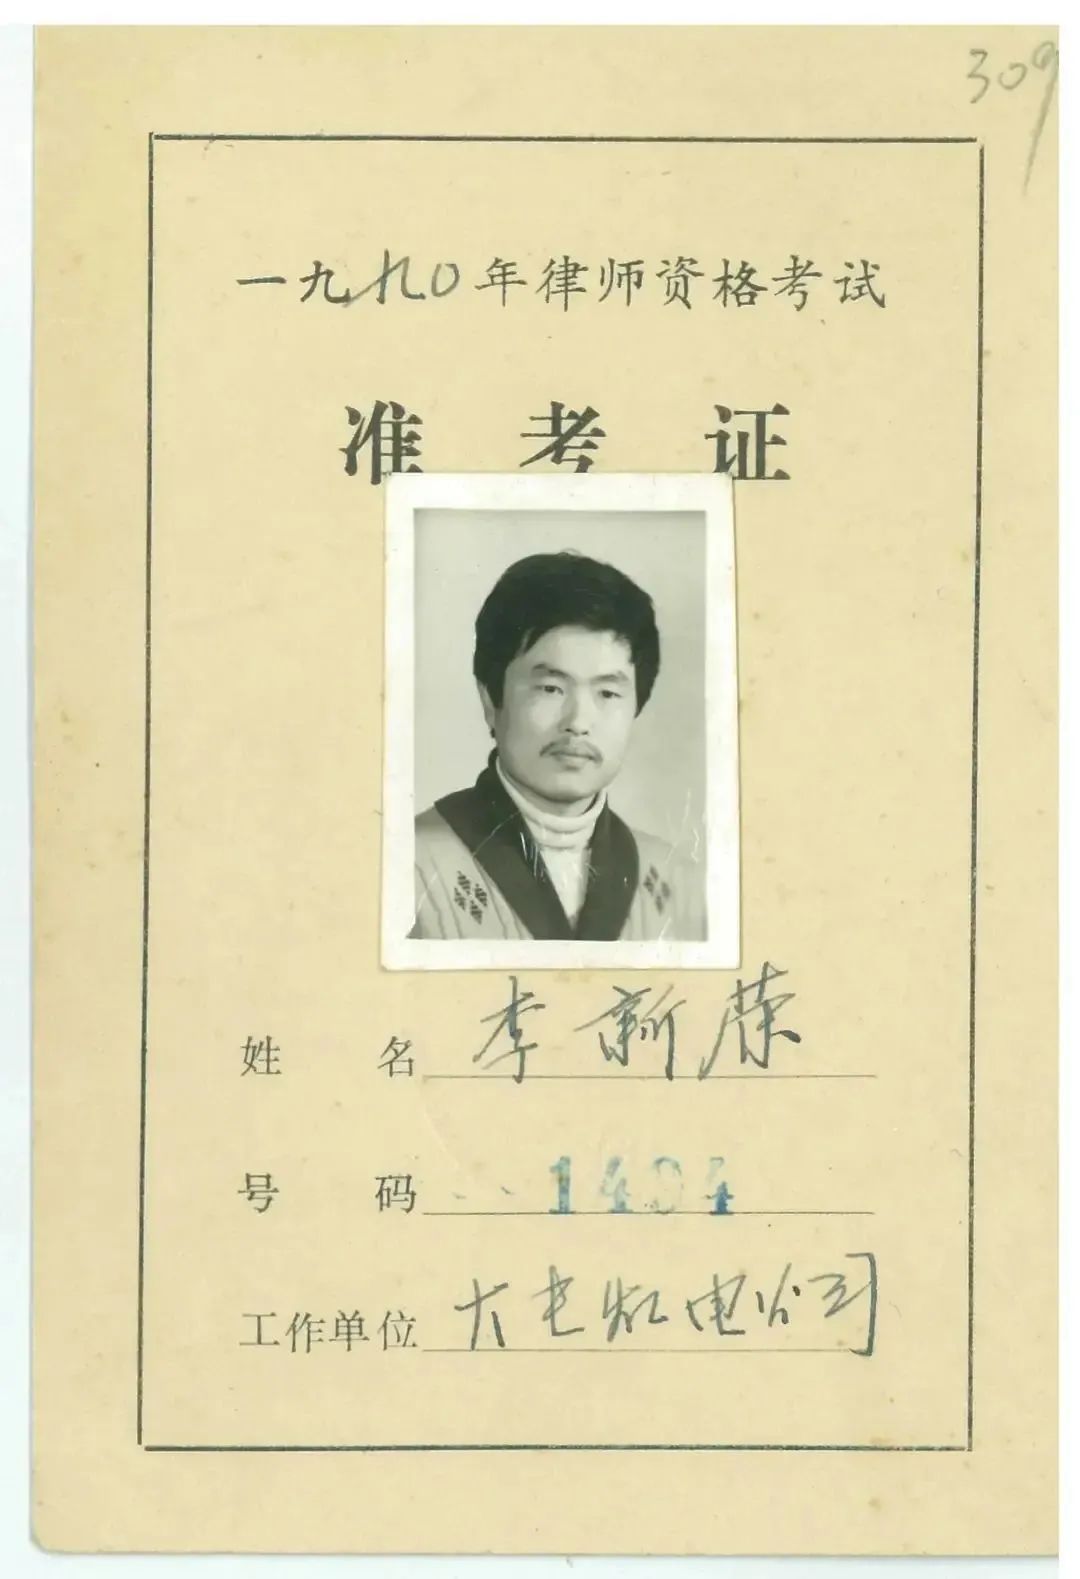 309
一九九〇年律师资格考试
准考证
姓名 李新荣
号码 1494
工作单位 机电公司